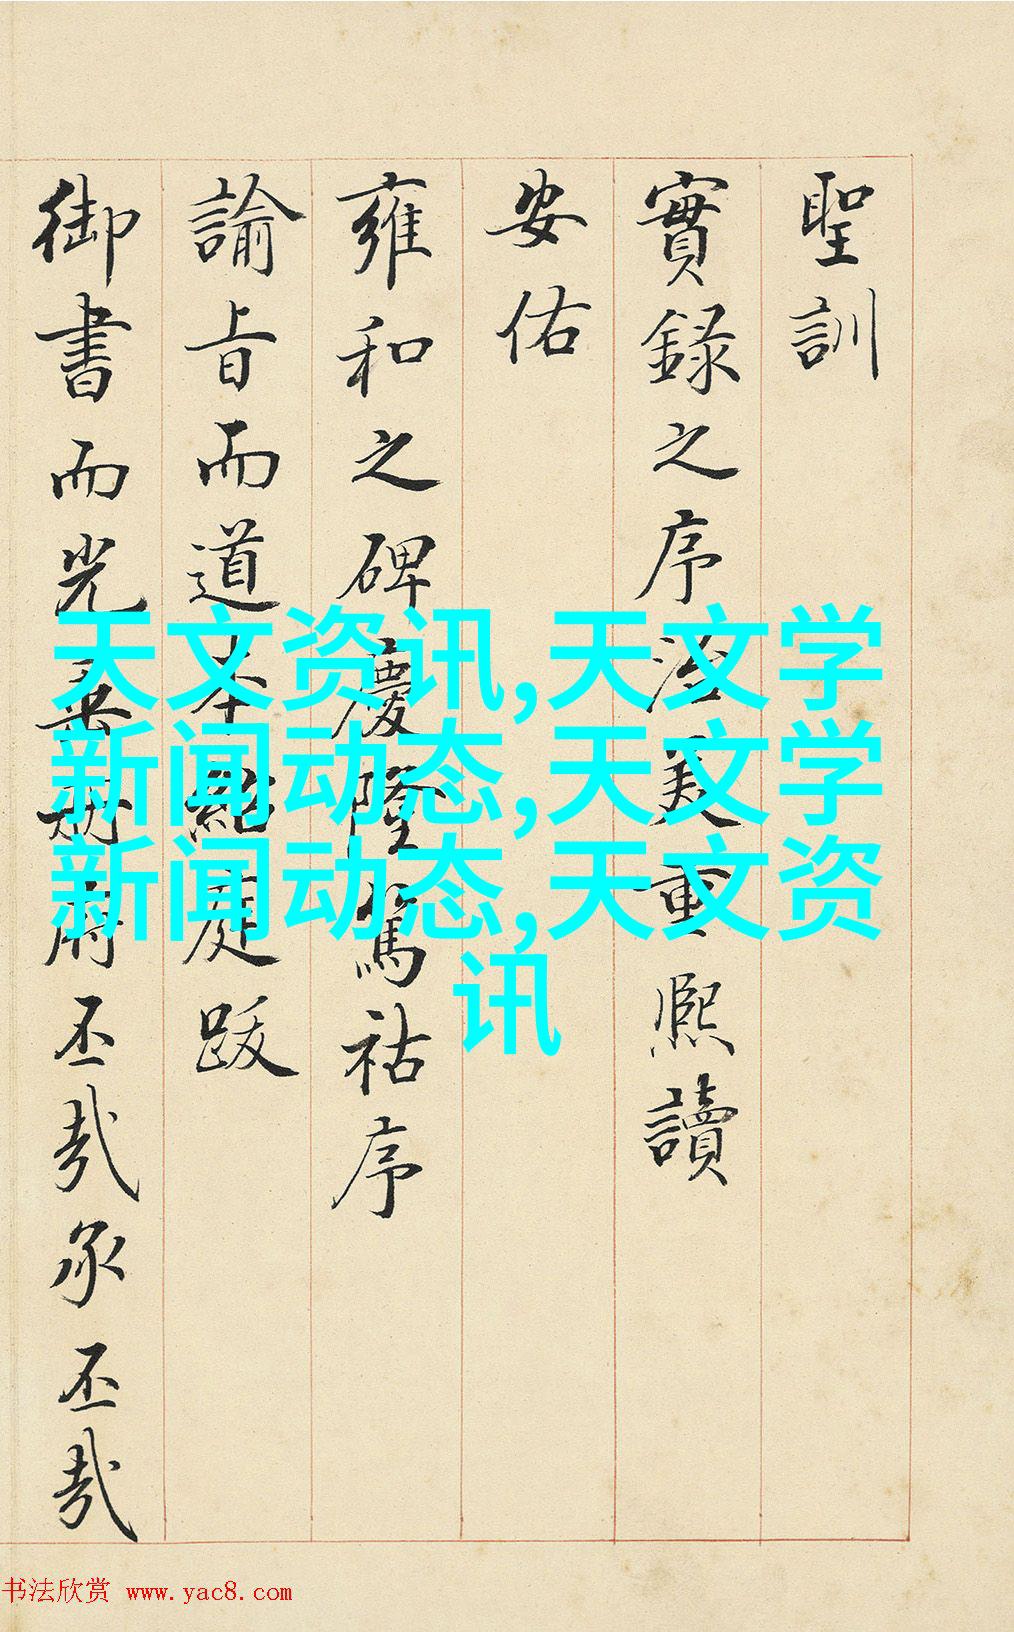 聖訓
實錄之序洽美重熙讀
安佑
雍和之碑慶隆篤祜序
諭旨而道本紹庭跋
御書而光垂冊府丕哉承丕哉
天文资讯,天文学
新闻动态,天文学
新闻动态,天文资
讯
书法欣赏 www.yac8.com